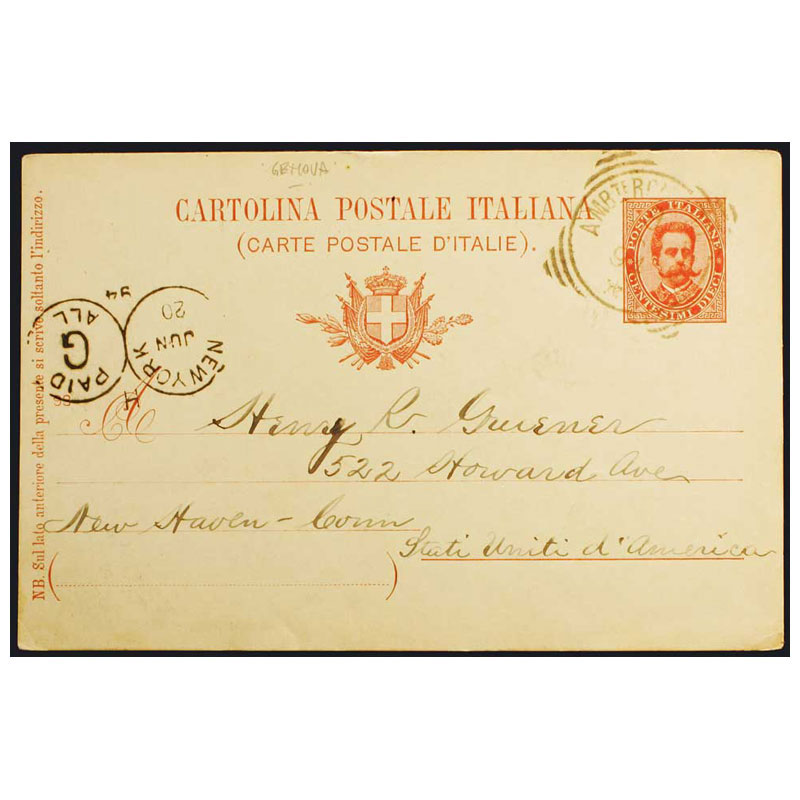 GENOVA
CARTOLINA POSTALE ITALIANA
(CARTE POSTALE D'ITALIE).
POSTE ITALIANE
CENTESIMI DIECI
NEW YORK
JUN
20
94
PAID
G
ALL
Henry R. Gruener
522 Howard Ave
New Haven - Conn
Stati Uniti d'America
NB. Sul lato anteriore della presente si scrive soltanto l'indirizzo.